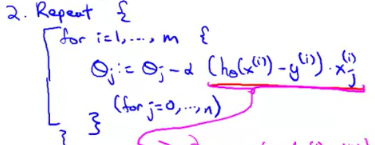 2. Repeat {
for i=1,...,m {
θj := θj - α (hθ(x^(i)) - y^(i)) · xj^(i)
(for j=0,...,n)
}
}